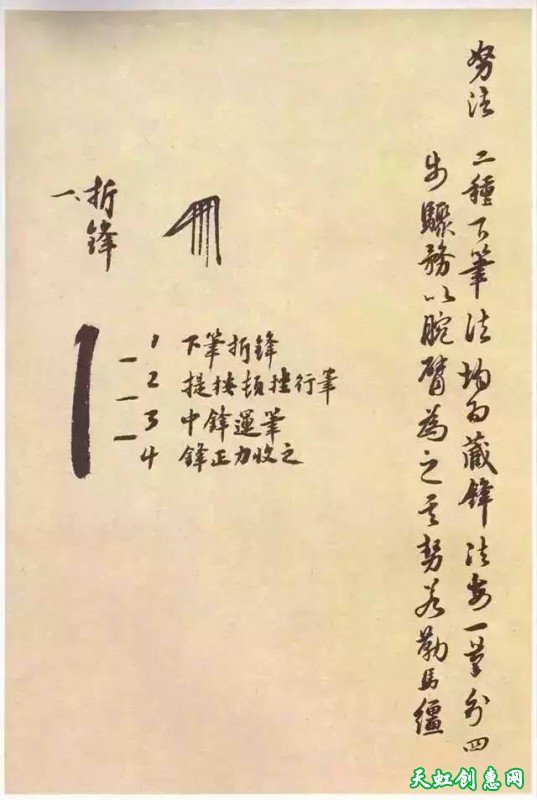 努法 二種下筆法均為藏鋒法每一筆分四
步驟務以腕臂為之其勢若勒馬韁
一、折鋒
1 下筆折鋒
2 提按頓挫行筆
3 中鋒運筆
4 鋒正力收之
天虹创惠网